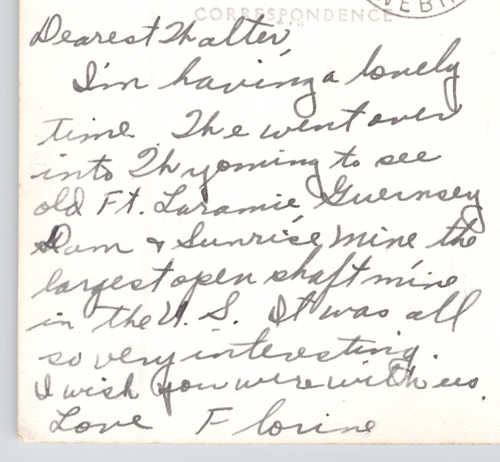 CORRESPONDENCE
NEBR
Dearest Walter,
I'm having a lonely
time. We went over
into Wyoming to see
old Ft. Laramie, Guernsey
Dam & Sunrise Mine the
largest open shaft mine
in the U.S. It was all
so very interesting.
I wish you were with us.
Love Florine